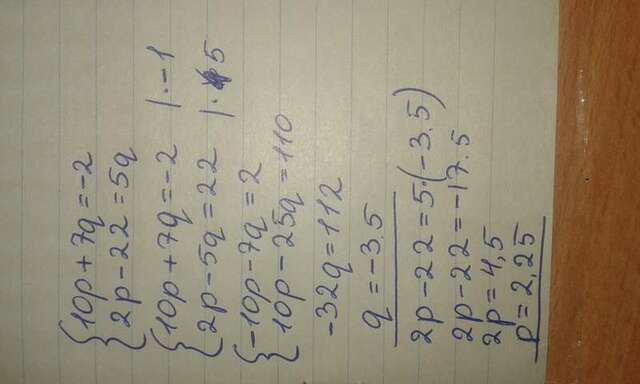 10p+7q=-2
2p-22=5q
10p+7q=-2 |·-1
2p-5q=22 |·5
-10p-7q=2
10p-25q=110
-32q=112
q=-3.5
2p-22=5·(-3.5)
2p-22=-17.5
2p=4,5
p=2,25